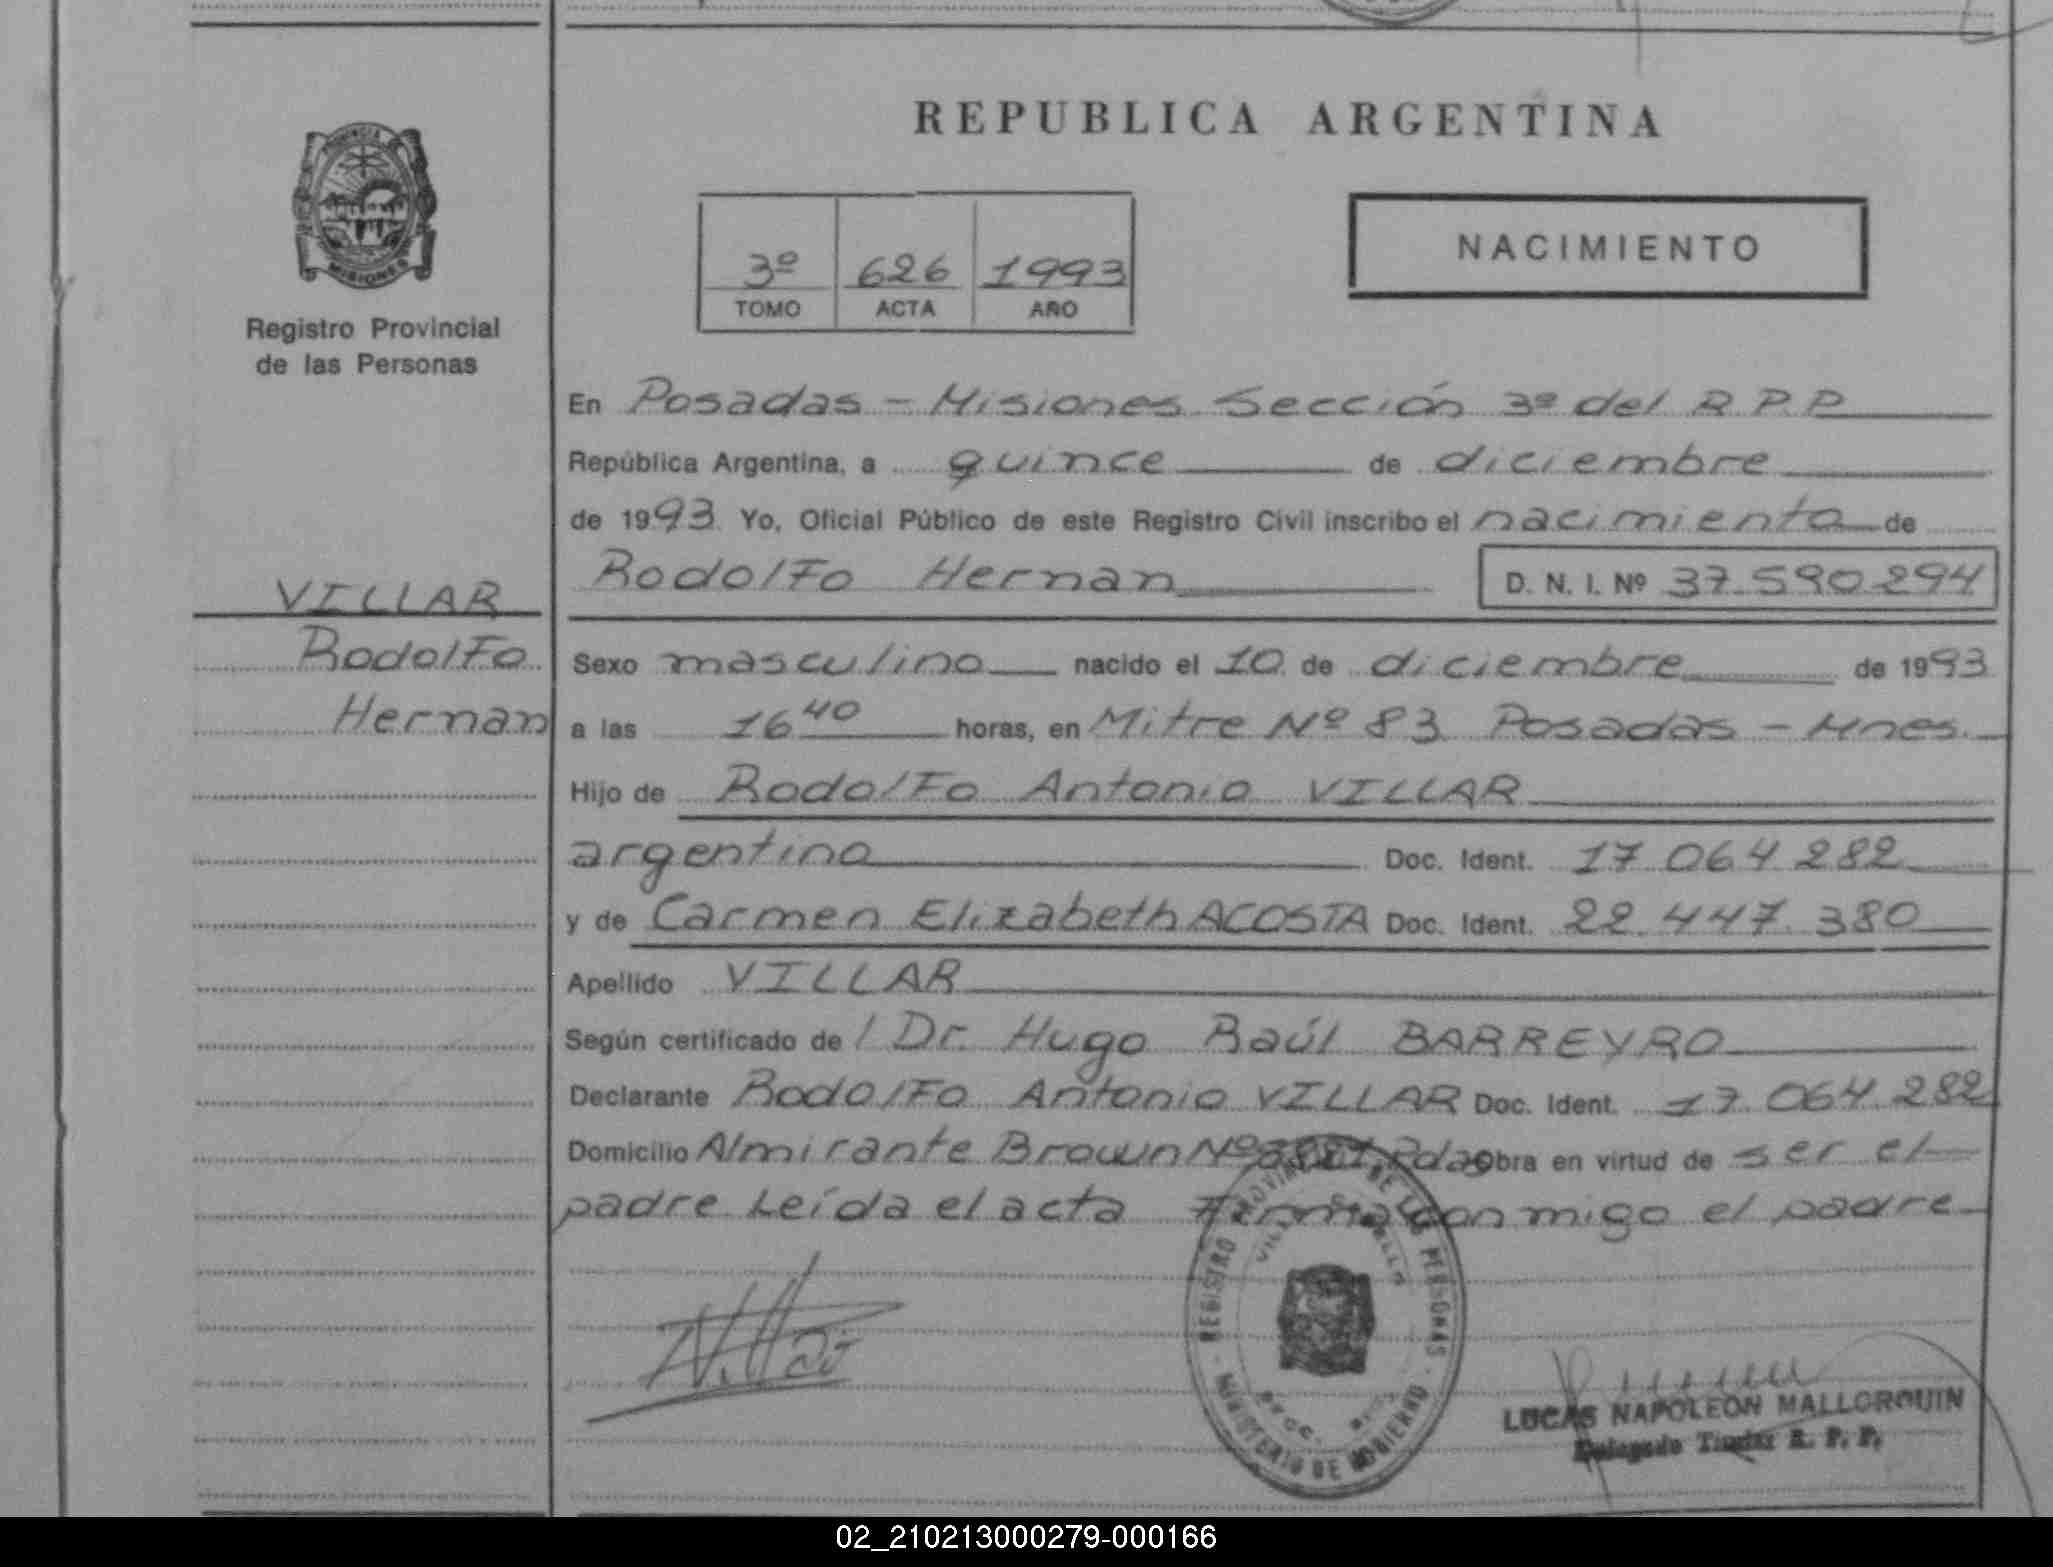 REPUBLICA ARGENTINA
PROVINCIA
MISIONES
Registro Provincial
de las Personas
3º 626 1993
TOMO ACTA AÑO
NACIMIENTO
En Posadas - Misiones Sección 3ª del R P P
República Argentina, a quince de diciembre
de 1993 Yo, Oficial Público de este Registro Civil inscribo el nacimiento de
Rodolfo Hernan D. N. I. Nº 37.590.294
VILLAR
Rodolfo
Hernan
Sexo masculino nacido el 10 de diciembre de 1993
a las 16 40 horas, en Mitre Nº 83 Posadas - Mnes.
Hijo de Rodolfo Antonio VILLAR
argentino Doc. Ident. 17 064 282
y de Carmen Elizabeth ACOSTA Doc. Ident. 22.447.380
Apellido VILLAR
Según certificado de / Dr. Hugo Raúl BARREYRO
Declarante Rodolfo Antonio VILLAR Doc. Ident. 17 064 282
Domicilio Almirante Brown Nº Pdas obra en virtud de ser el
padre Leída el acta Firma conmigo el padre
Villar
REGISTRO PROVINCIAL DE LAS PERSONAS
MINISTERIO DE GOBIERNO
VILLA
SECC.
LUCAS NAPOLEON MALLORQUIN
Delegado Titular R. P. P.
02_210213000279-000166